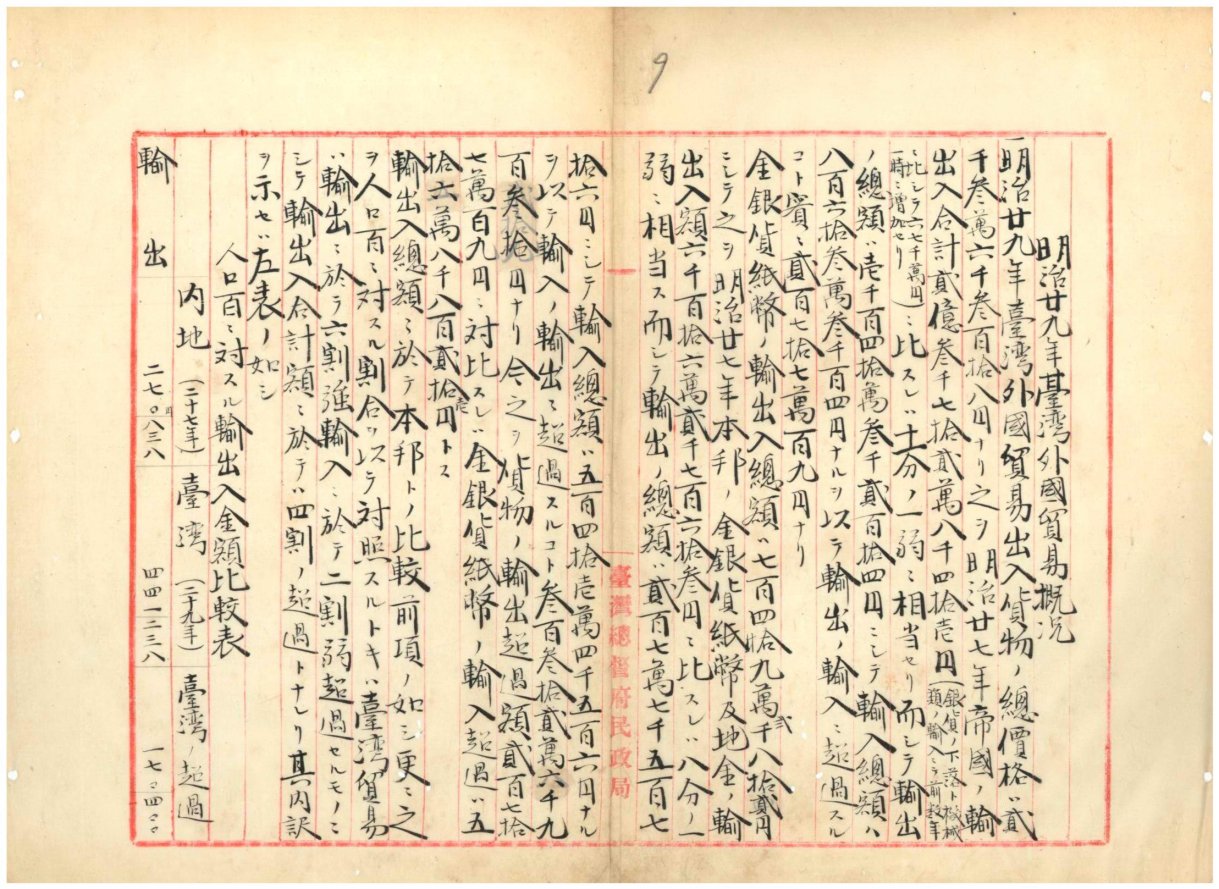 9
明治廿九年臺湾外國貿易概況
一明治廿九年臺湾外國貿易出入貨物ノ總價格ハ貳
千叁萬六千叁百拾八円ナリ之ヲ明治廿七年帝國ノ輸
出入合計貳億叁千七拾貳萬八千四拾壱円(銀貨ノ下落ト機械
類ノ輸入ニテ前数年
ニ比シテ六七千萬円
一時ニ増加セリ)ニ比スレハ十一分ノ一弱ニ相当セリ而シテ輸出
ノ總額ハ壱千百四拾萬叁千貳百拾四円ニシテ輸入總額ハ
八百六拾叁萬叁千百四円ナルヲ以テ輸出ノ輸入ニ超過スル
コト實ニ貳百七拾七萬百九円ナリ
金銀貨紙幣ノ輸出入總額ハ七百四拾九萬貳千八拾貳円
ニシテ之ヲ明治廿七年本邦ノ金銀貨紙幣及地金ノ輸
出入額六千百拾六萬貳千七百六拾叁円ニ比スレハ八分ノ一
弱ニ相当ス而シテ輸出ノ總額ハ貳百七萬七千五百七
臺灣總督府民政局
拾六円ニシテ輸入總額ハ五百四拾壱萬四千五百六円ナル
ヲ以テ輸入ノ輸出ニ超過スルコト叁百叁拾貳萬六千九
百叁拾円ナリ今之ヲ貨物ノ輸出超過額貳百七拾
七萬百九円ニ対比スレハ金銀貨紙幣ノ輸入超過ハ五
拾六萬八千八百貳拾壱円トス
輸出入總額ニ於テ本邦トノ比較前項ノ如シ更ニ之
ヲ人口百ニ対スル割合ヲ以テ対照スルトキハ臺湾貿易
ハ輸出ニ於テ六割強輸入ニ於テ二割弱超過セルモノニ
シテ輸出入合計額ニ於テハ四割ノ超過トナレリ其内訳
ヲ示セハ左表ノ如シ
人口百ニ対スル輸出入金額比較表
内地(二十七年) 臺湾(二十九年) 臺湾ノ超過
輸出 二七〇円八三八 四四一二三八 一七〇四〇〇